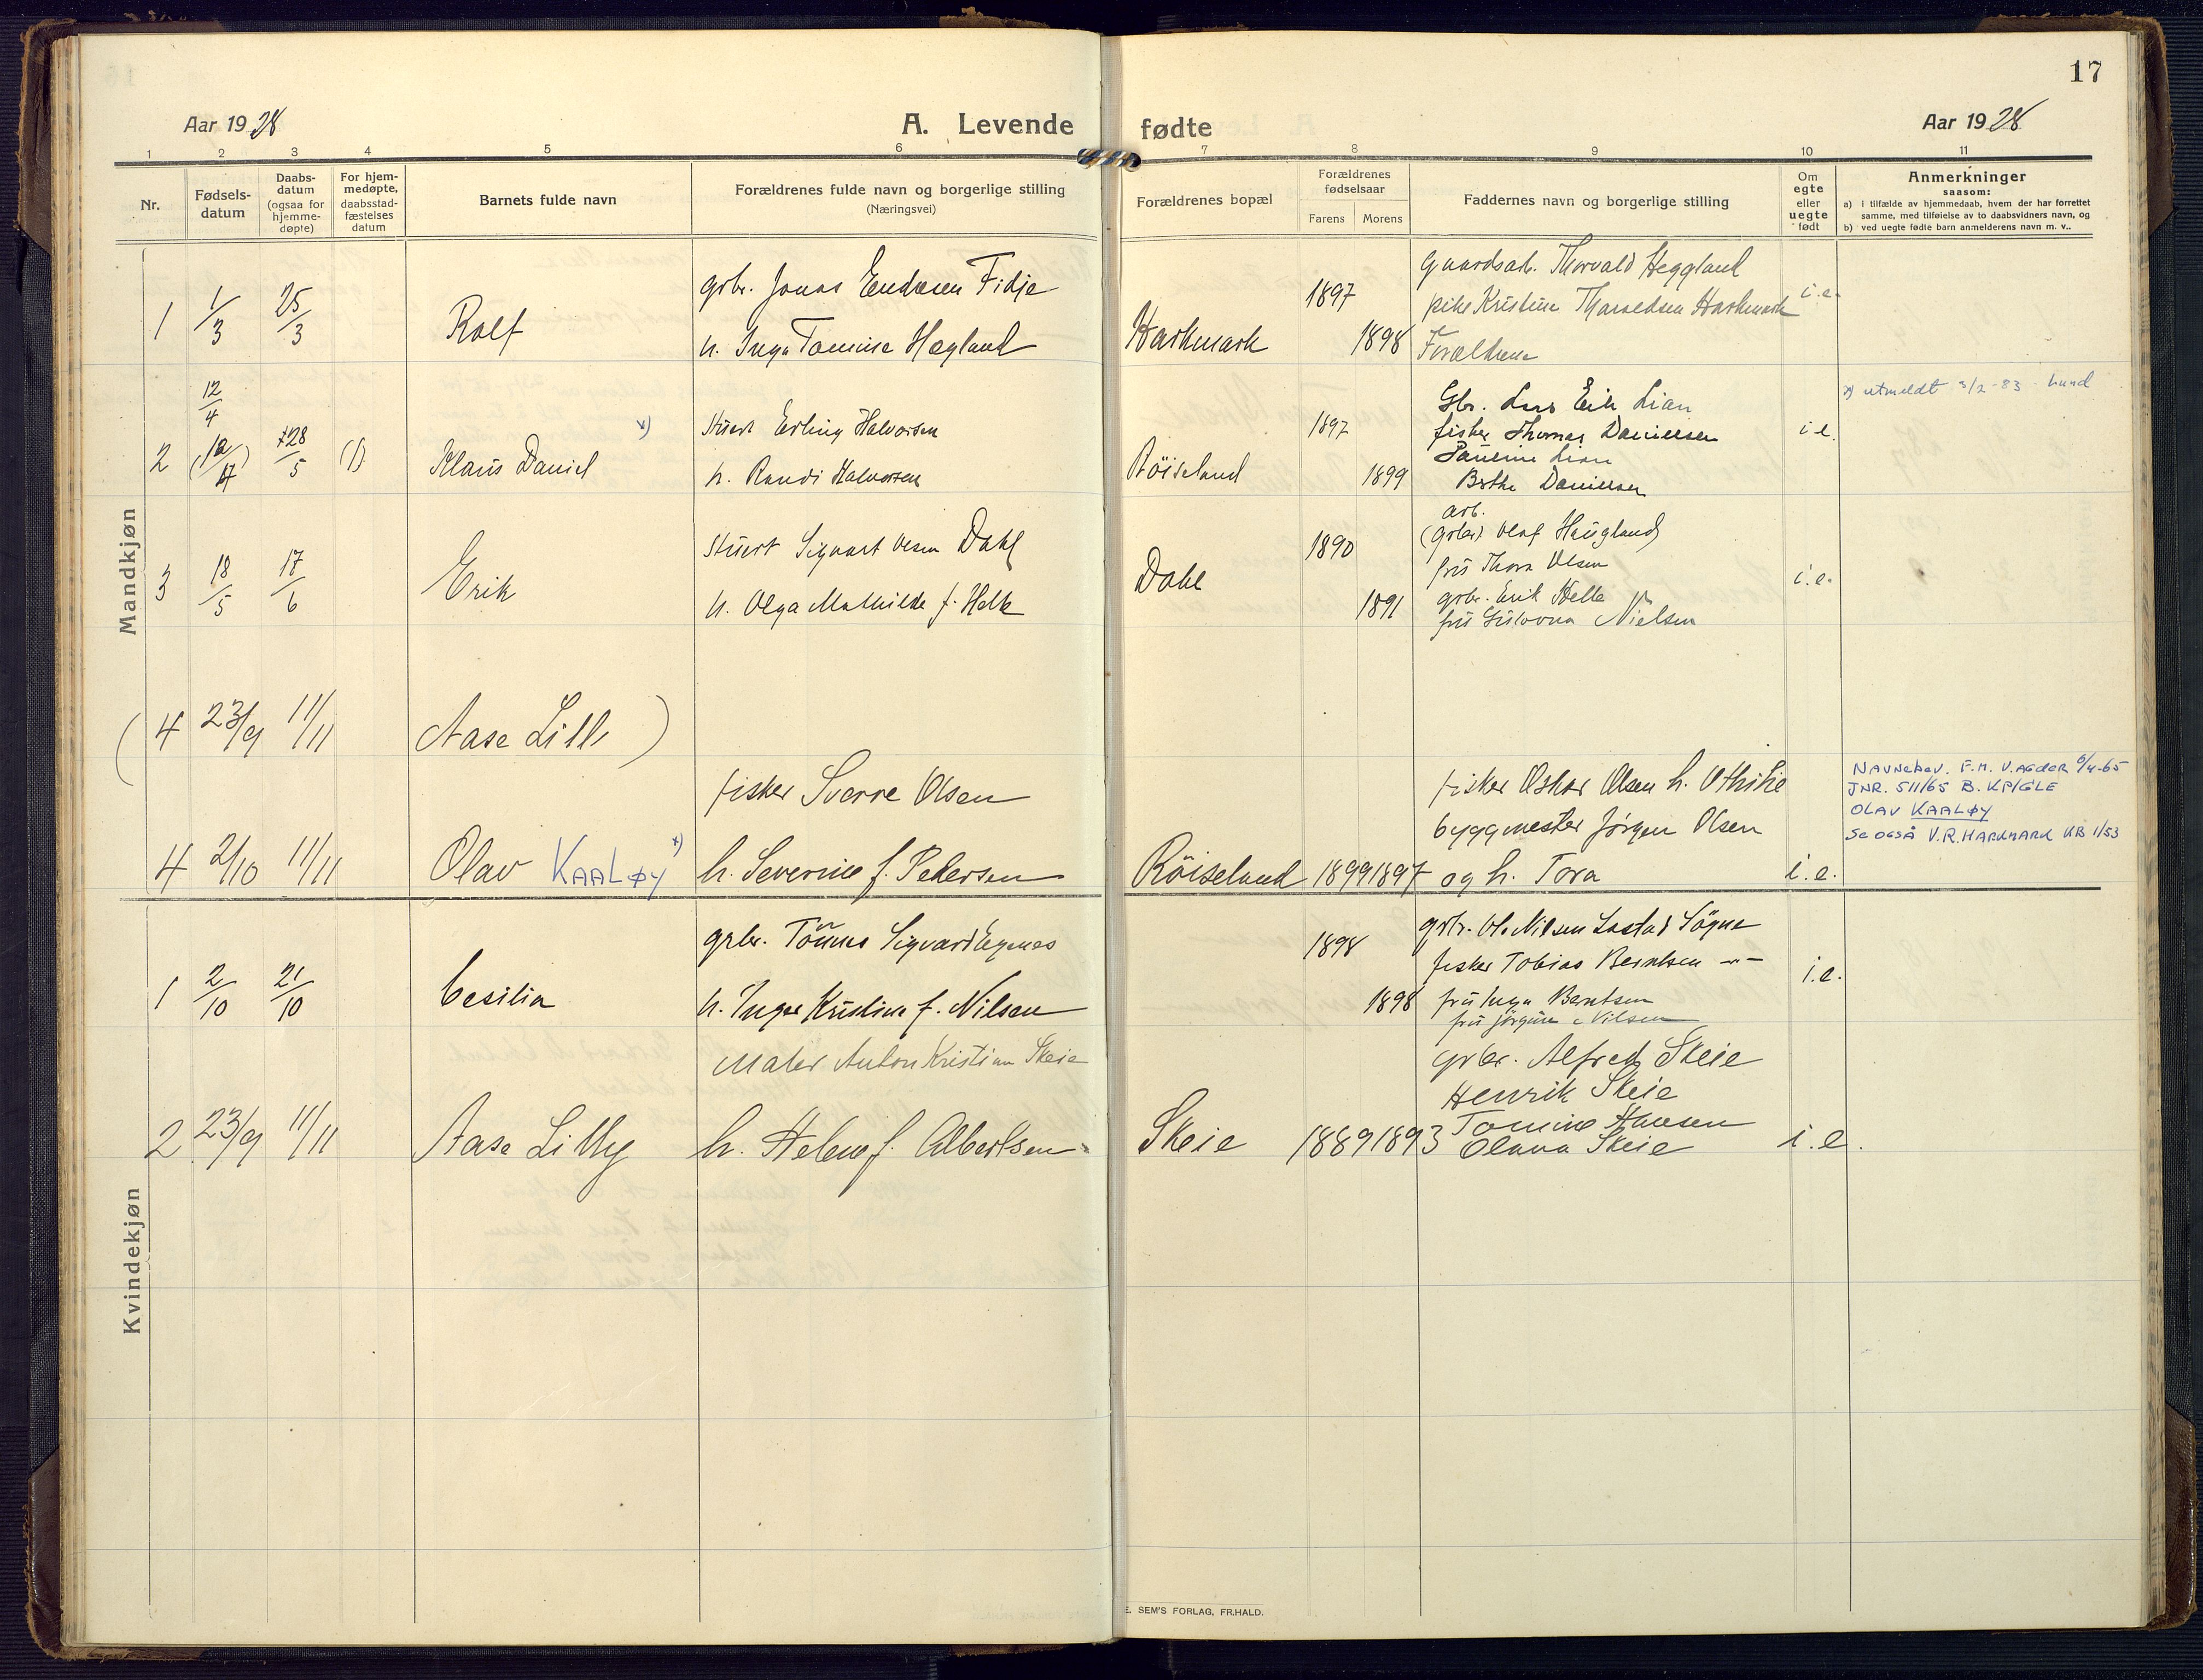 17
Aar 1928
A. Levende fødte
Aar 1928
1 2 3 4 5 6 7 8 9 10 11
Nr.
Fødsels-
datum
Daabs-
datum
(ogsaa for
hjemme-
døpte)
For hjem-
medøpte,
daabsstad-
fæstelses
datum
Barnets fulde navn
Forældrenes fulde navn og borgerlige stilling
(Næringsvei)
Forældrenes bopæl
Forældrenes
fødselsaar
Farens Morens
Faddernes navn og borgerlige stilling
Om
egte
eller
uegte
født
Anmerkninger
saasom:
a) i tilfælde av hjemmedaab, hvem der har forrettet
samme, med tilføielse av to daabsvidners navn, og
b) ved uegte fødte barn anmelderens navn m. v..
Mandkjøn
1 1/3 25/3 Rolf
grbr. Jonas Endresen Fidje
h. Inga Tomine Hægland
Harkmark 1897 1898
Gaardsarb. Thorvald Heggland
pike Kristine Harkmark
Forældrene
i.e.
2 12/4 (12/4) 28/5 (1) Klaus Daniel x)
Stuert Erling Halvorsen
h. Randi Halvorsen
Röiseland 1897 1899
Gbr. Lars Eik Lian
fisker Thomas Danielsen
Lian
Berthe Danielsen
i.e.
x) utmeldt 3/2-83
3 18/5 17/6 Erik
Stuert Sigvart Olsen Dahl
h. Olga Mathilde f. Helle
Dahl 1890 1891
arb.
(grbr) Olaf Haugland
frü Thora Olsen
grbr. Erik Helle
frü Nielsen
i.e.
(4 23/9 11/11 Aase Lilly)
4 2/10 11/11 Olav KAALØY x)
fisker Sverre Olsen
h. Severine f. Pedersen
Röiseland 1899 1897
fisker Oskar Olsen h. Othilie
byggmester Jörgen Olsen
og h. Tora
i.e.
NAVNEBEV. F.M. V.AGDER 6/4-65
JNR. 511/65 B. KP/GLE
OLAV KAALØY
SE OGSÅ V.R. HARKMARK KB 1/53
Kvindekjøn
1 2/10 21/10 Cesilia
grbr. Tönnes Sigvard Egenes
h. Inger Kristine f. Nilsen
1898 1898
grbr. Ole Nilsen Lastad Sögne
fisker Tobias Berntsen -"-
frü Inga Berntsen
frü Jörgine Nilsen
i.e.
2 23/9 11/11 Aase Lilly
Maler Anton Kristian Skeie
h. Helene f. Albertsen
Skeie 1889 1893
grbr. Alfred Skeie
Henrik Skeie
Tomine Hansen
Olava Skeie
i.e.
E. SEM'S FORLAG, FR.HALD.